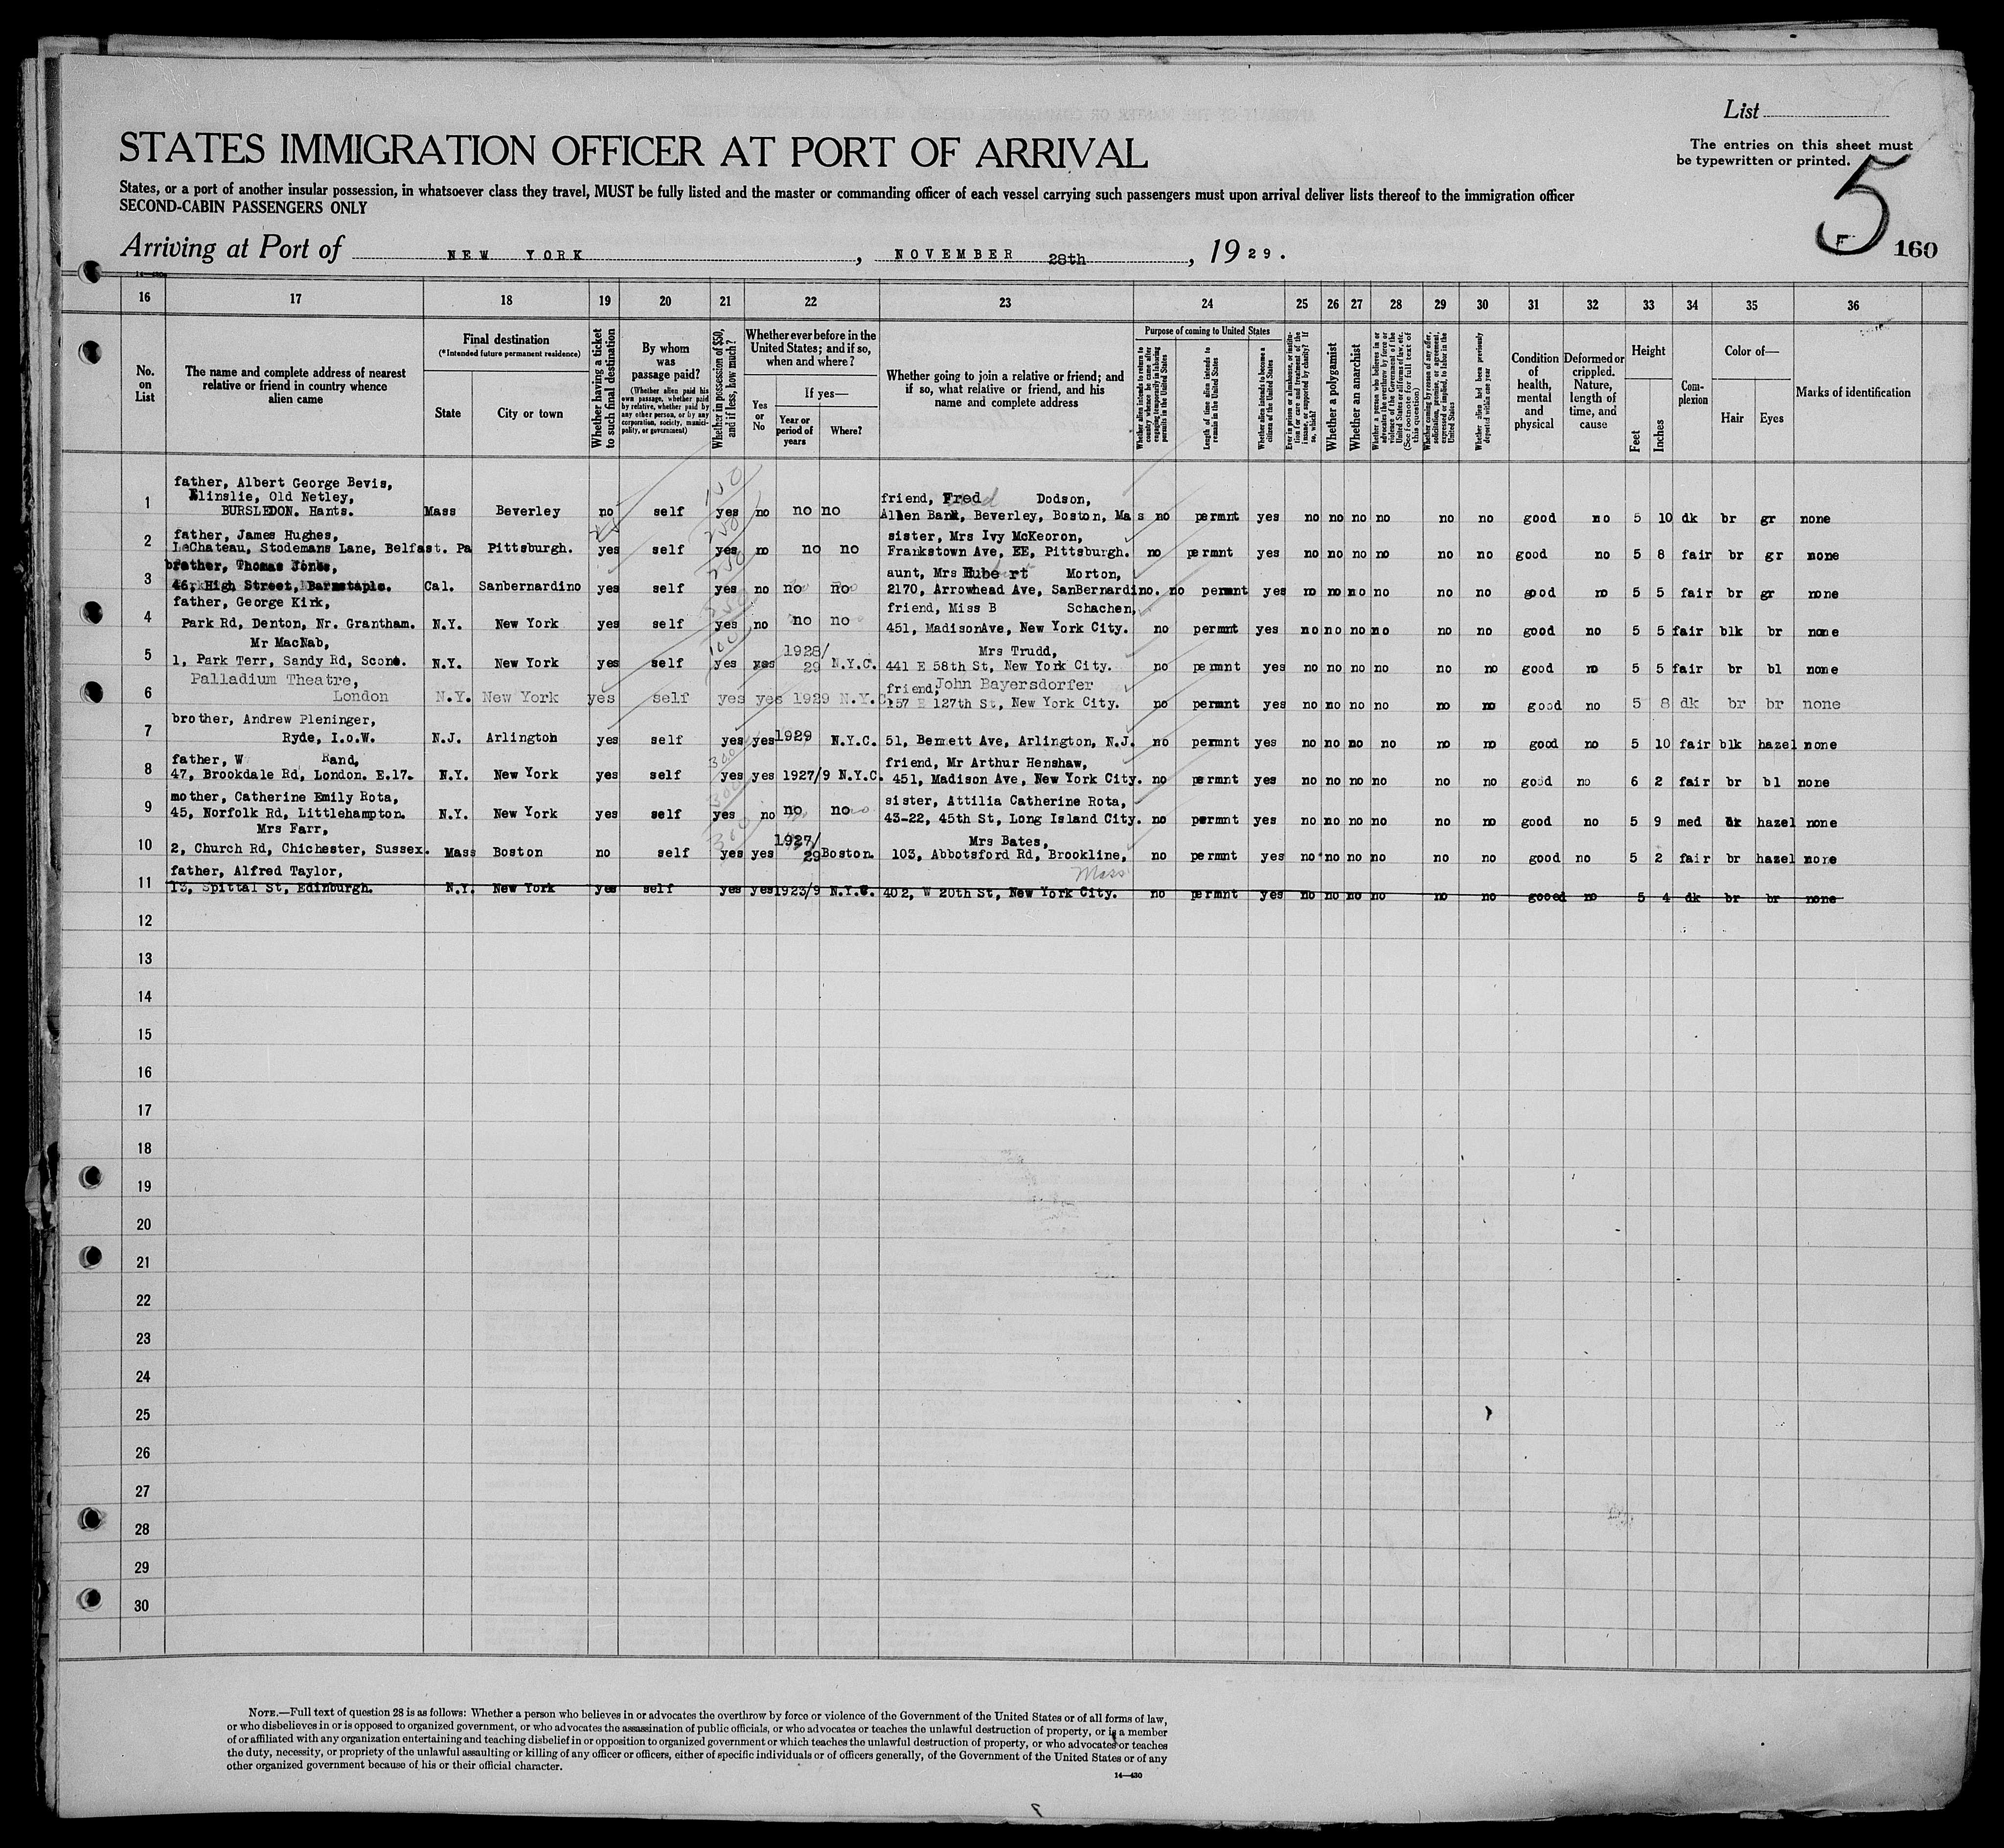 List
The entries on this sheet must
be typewritten or printed.
STATES IMMIGRATION OFFICER AT PORT OF ARRIVAL
5
States, or a port of another insular possession, in whatsoever class they travel, MUST be fully listed and the master or commanding officer of each vessel carrying such passengers must upon arrival deliver lists thereof to the immigration officer
SECOND-CABIN PASSENGERS ONLY
Arriving at Port of NEW YORK, NOVEMBER 28th, 1929.
160
16 17 18 19 20 21 22 23 24 25 26 27 28 29 30 31 32 33 34 35 36
No. on List
The name and complete address of nearest relative or friend in country whence alien came
Final destination
(*Intended future permanent residence)
State
City or town
Whether having a ticket to such final destination
By whom was passage paid?
(Whether alien paid his own passage, whether paid by relative, whether paid by any other person, or by any corporation, society, municipality, or government)
Whether in possession of $50, and if less, how much?
Whether ever before in the United States; and if so, when and where?
Yes or No
If yes—
Year or period of years
Where?
Whether going to join a relative or friend; and if so, what relative or friend, and his name and complete address
Purpose of coming to United States
Whether alien intends to return to country whence he came after engaging temporarily in laboring pursuits in the United States
Length of time alien intends to remain in the United States
Whether alien intends to become a citizen of the United States
Ever in prison or almshouse, or institution for care and treatment of the insane, or supported by charity? If so, which?
Whether a polygamist
Whether an anarchist
Whether a person who believes in or advocates the overthrow by force or violence of the Government of the United States or all forms of law, etc. (See footnote for full text of this question)
Whether coming by reason of any offer, solicitation, promise, or agreement, expressed or implied, to labor in the United States
Whether alien had been previously deported within one year
Condition of health, mental and physical
Deformed or crippled. Nature, length of time, and cause
Height
Feet
Inches
Complexion
Color of—
Hair
Eyes
Marks of identification
father, Albert George Bevis,
Elinslie, Old Netley,
friend, Fred Dodson,
1 BURSLEDON. Hants. Mass Beverley no self yes no no no Allen Bank, Beverley, Boston, Mas no permnt yes no no no no no no good no 5 10 dk br gr none
father, James Hughes,
sister, Mrs Ivy McKeoron,
2 LeChateau, Stodemans Lane, Belfast. Pa Pittsburgh. yes self yes no no no Frankstown Ave, EE, Pittsburgh. no permnt yes no no no no no no good no 5 8 fair br gr none
father, Thomas Jones,
aunt, Mrs Hubert Morton,
3 46, High Street, Barnstaple. Cal. Sanbernardino yes self yes no no no 2170, Arrowhead Ave, SanBernardino. no permnt yes no no no no no no good no 5 5 fair br gr none
father, George Kirk,
friend, Miss B Schachen,
4 Park Rd, Denton, Nr. Grantham. N.Y. New York yes self yes no no no 451, MadisonAve, New York City. no permnt yes no no no no no no good no 5 5 fair blk br none
Mr MacNab,
Mrs Trudd,
5 1, Park Terr, Sandy Rd, Scone. N.Y. New York yes self yes yes 1928/29 N.Y.C. 441 E 58th St, New York City. no permnt yes no no no no no no good no 5 5 fair br bl none
Palladium Theatre,
friend, John Bayersdorfer
6 London N.Y. New York yes self yes yes 1929 N.Y.C. 157 E 127th St, New York City. no permnt yes no no no no no no good no 5 8 dk br br none
brother, Andrew Pleninger,
7 Ryde, I.o.W. N.J. Arlington yes self yes yes 1929 N.Y.C. 51, Bennett Ave, Arlington, N.J. no permnt yes no no no no no no good no 5 10 fair blk hazel none
father, W Rand,
friend, Mr Arthur Henshaw,
8 47, Brookdale Rd, London. E.17. N.Y. New York yes self yes yes 1927/9 N.Y.C. 451, Madison Ave, New York City. no permnt yes no no no no no no good no 6 2 fair br bl none
mother, Catherine Emily Rota,
sister, Attilia Catherine Rota,
9 45, Norfolk Rd, Littlehampton. N.Y. New York yes self yes no no no 43-22, 45th St, Long Island City. no permnt yes no no no no no no good no 5 9 med dk hazel none
Mrs Farr,
Mrs Bates,
10 2, Church Rd, Chichester, Sussex. Mass Boston no self yes yes 1927/29 Boston. 103, Abbotsford Rd, Brookline, Mass no permnt yes no no no no no no good no 5 2 fair br hazel none
father, Alfred Taylor,
11 13, Spittal St, Edinburgh. N.Y. New York yes self yes yes 1923/9 N.Y.C. 402, W 20th St, New York City. no permnt yes no no no no no no gooed no 5 4 dk br br none
12
13
14
15
16
17
18
19
20
21
22
23
24
25
26
27
28
29
30
NOTE.—Full text of question 28 is as follows: Whether a person who believes in or advocates the overthrow by force or violence of the Government of the United States or of all forms of law,
or who disbelieves in or is opposed to organized government, or who advocates the assassination of public officials, or who advocates or teaches the unlawful destruction of property, or is a member
of or affiliated with any organization entertaining and teaching disbelief in or opposition to organized government or which teaches the unlawful destruction of property, or who advocates or teaches
the duty, necessity, or propriety of the unlawful assaulting or killing of any officer or officers, either of specific individuals or of officers generally, of the Government of the United States or of any
other organized government because of his or their official character.
14—430